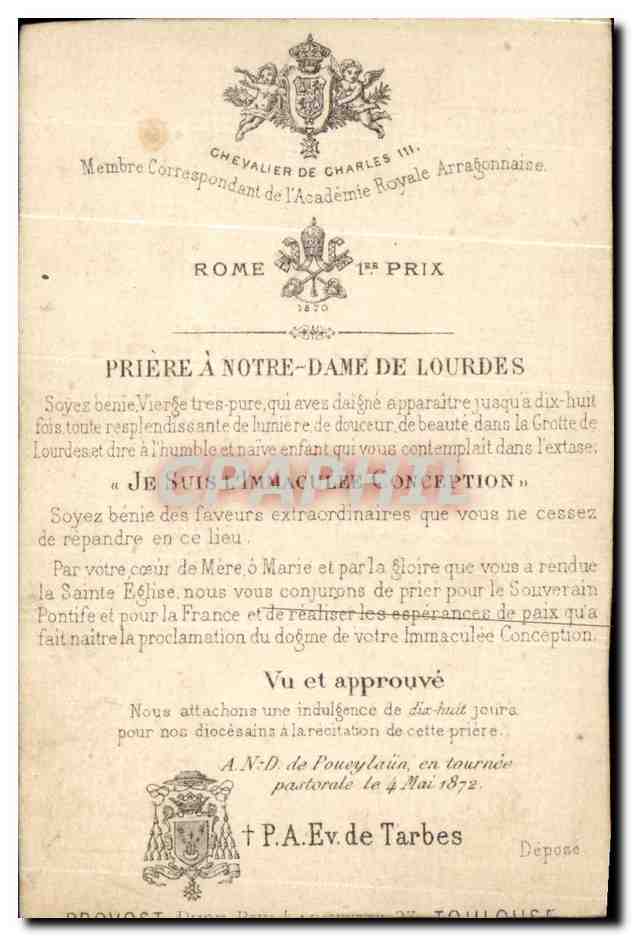 CHEVALIER DE CHARLES III.
Membre Correspondant de l'Académie Royale Arragonnaise.
ROME 1ER PRIX
1870
PRIÈRE À NOTRE-DAME DE LOURDES
Soyez bénie, Vierge très-pure, qui avez daigné apparaître jusqu'à dix-huit
fois, toute resplendissante de lumière, de douceur, de beauté, dans la Grotte de
Lourdes, et dire à l'humble et naïve enfant qui vous contemplait dans l'extase:
« JE SUIS L'IMMACULÉE CONCEPTION »
Soyez bénie des faveurs extraordinaires que vous ne cessez
de répandre en ce lieu.
Par votre cœur de Mère, ô Marie et par la gloire que vous a rendue
la Sainte Église, nous vous conjurons de prier pour le Souverain
Pontife et pour la France et de réaliser les espérances de paix qu'a
fait naître la proclamation du dogme de votre Immaculée Conception.
Vu et approuvé
Nous attachons une indulgence de dix-huit jours
pour nos diocésains à la récitation de cette prière.
A N.-D. de Poueylaün, en tournée
pastorale le 4 Mai 1872.
† P.A. Ev. de Tarbes
Déposé
TOULOUSE
CPAPHIL